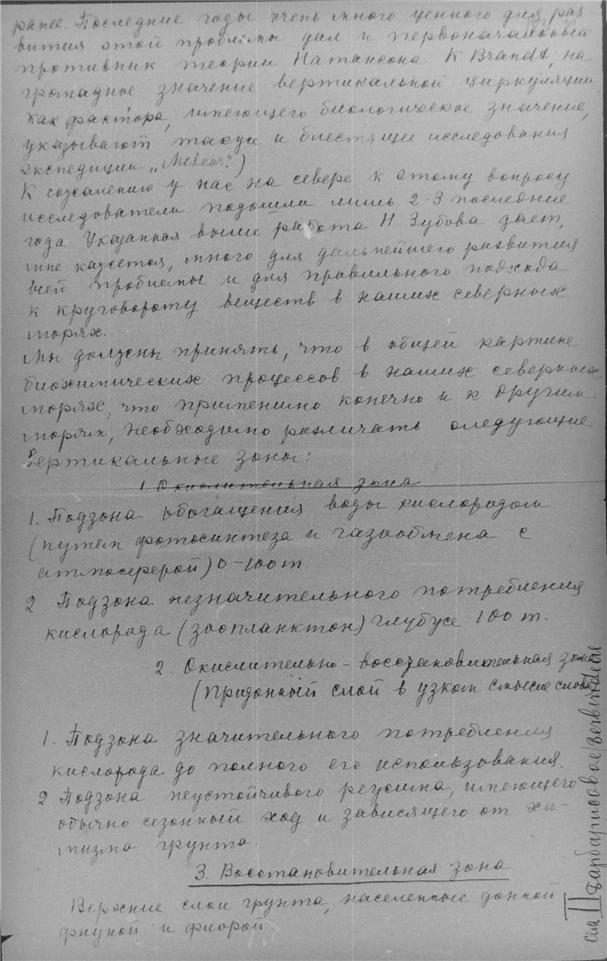 ранее. Последние годы очень много ценного для раз-
вития этой проблемы дал и первоначальный
противник теории Натансона K Brandt, на
громадное значение вертикальной циркуляции
как фактора, имеющего биологическое значение,
указывают также и блестящее исследования
экспедиции „Meteor")
К сожалению у нас на севере к этому вопросу
исследователи подошли лишь 2-3 последние
года Указанная выше работа Н. Зубова дает,
мне кажется, много для дальнейшего развития
всей проблемы и для правильного подхода
к круговороту веществ в наших северных
морях.
Мы должны принять, что в общей картине
биохимических процессов в наших северных
морях, что применимо конечно и к другим
морям, необходимо различать следующие
вертикальные зоны:
1 Окислительная зона
1. Подзона обогащения воды кислородом
(путем фотосинтеза и газообмена с
атмосферой) 0-100 m.
2. Подзона незначительного потребления
кислорода (зоопланктон) глубже 100 m.
2. Окислительно-восстановительная зона
(Придонный слой в узком смысле слова)
1. Подзона значительного потребления
кислорода до полного его использования.
2 Подзона неустойчивого режима, имеющего
обычно сезонный ход и зависящего от хи-
мизма грунта.
3. Восстановительная зона
Верхние слои грунта, населенные донной
фауной и флорой
II